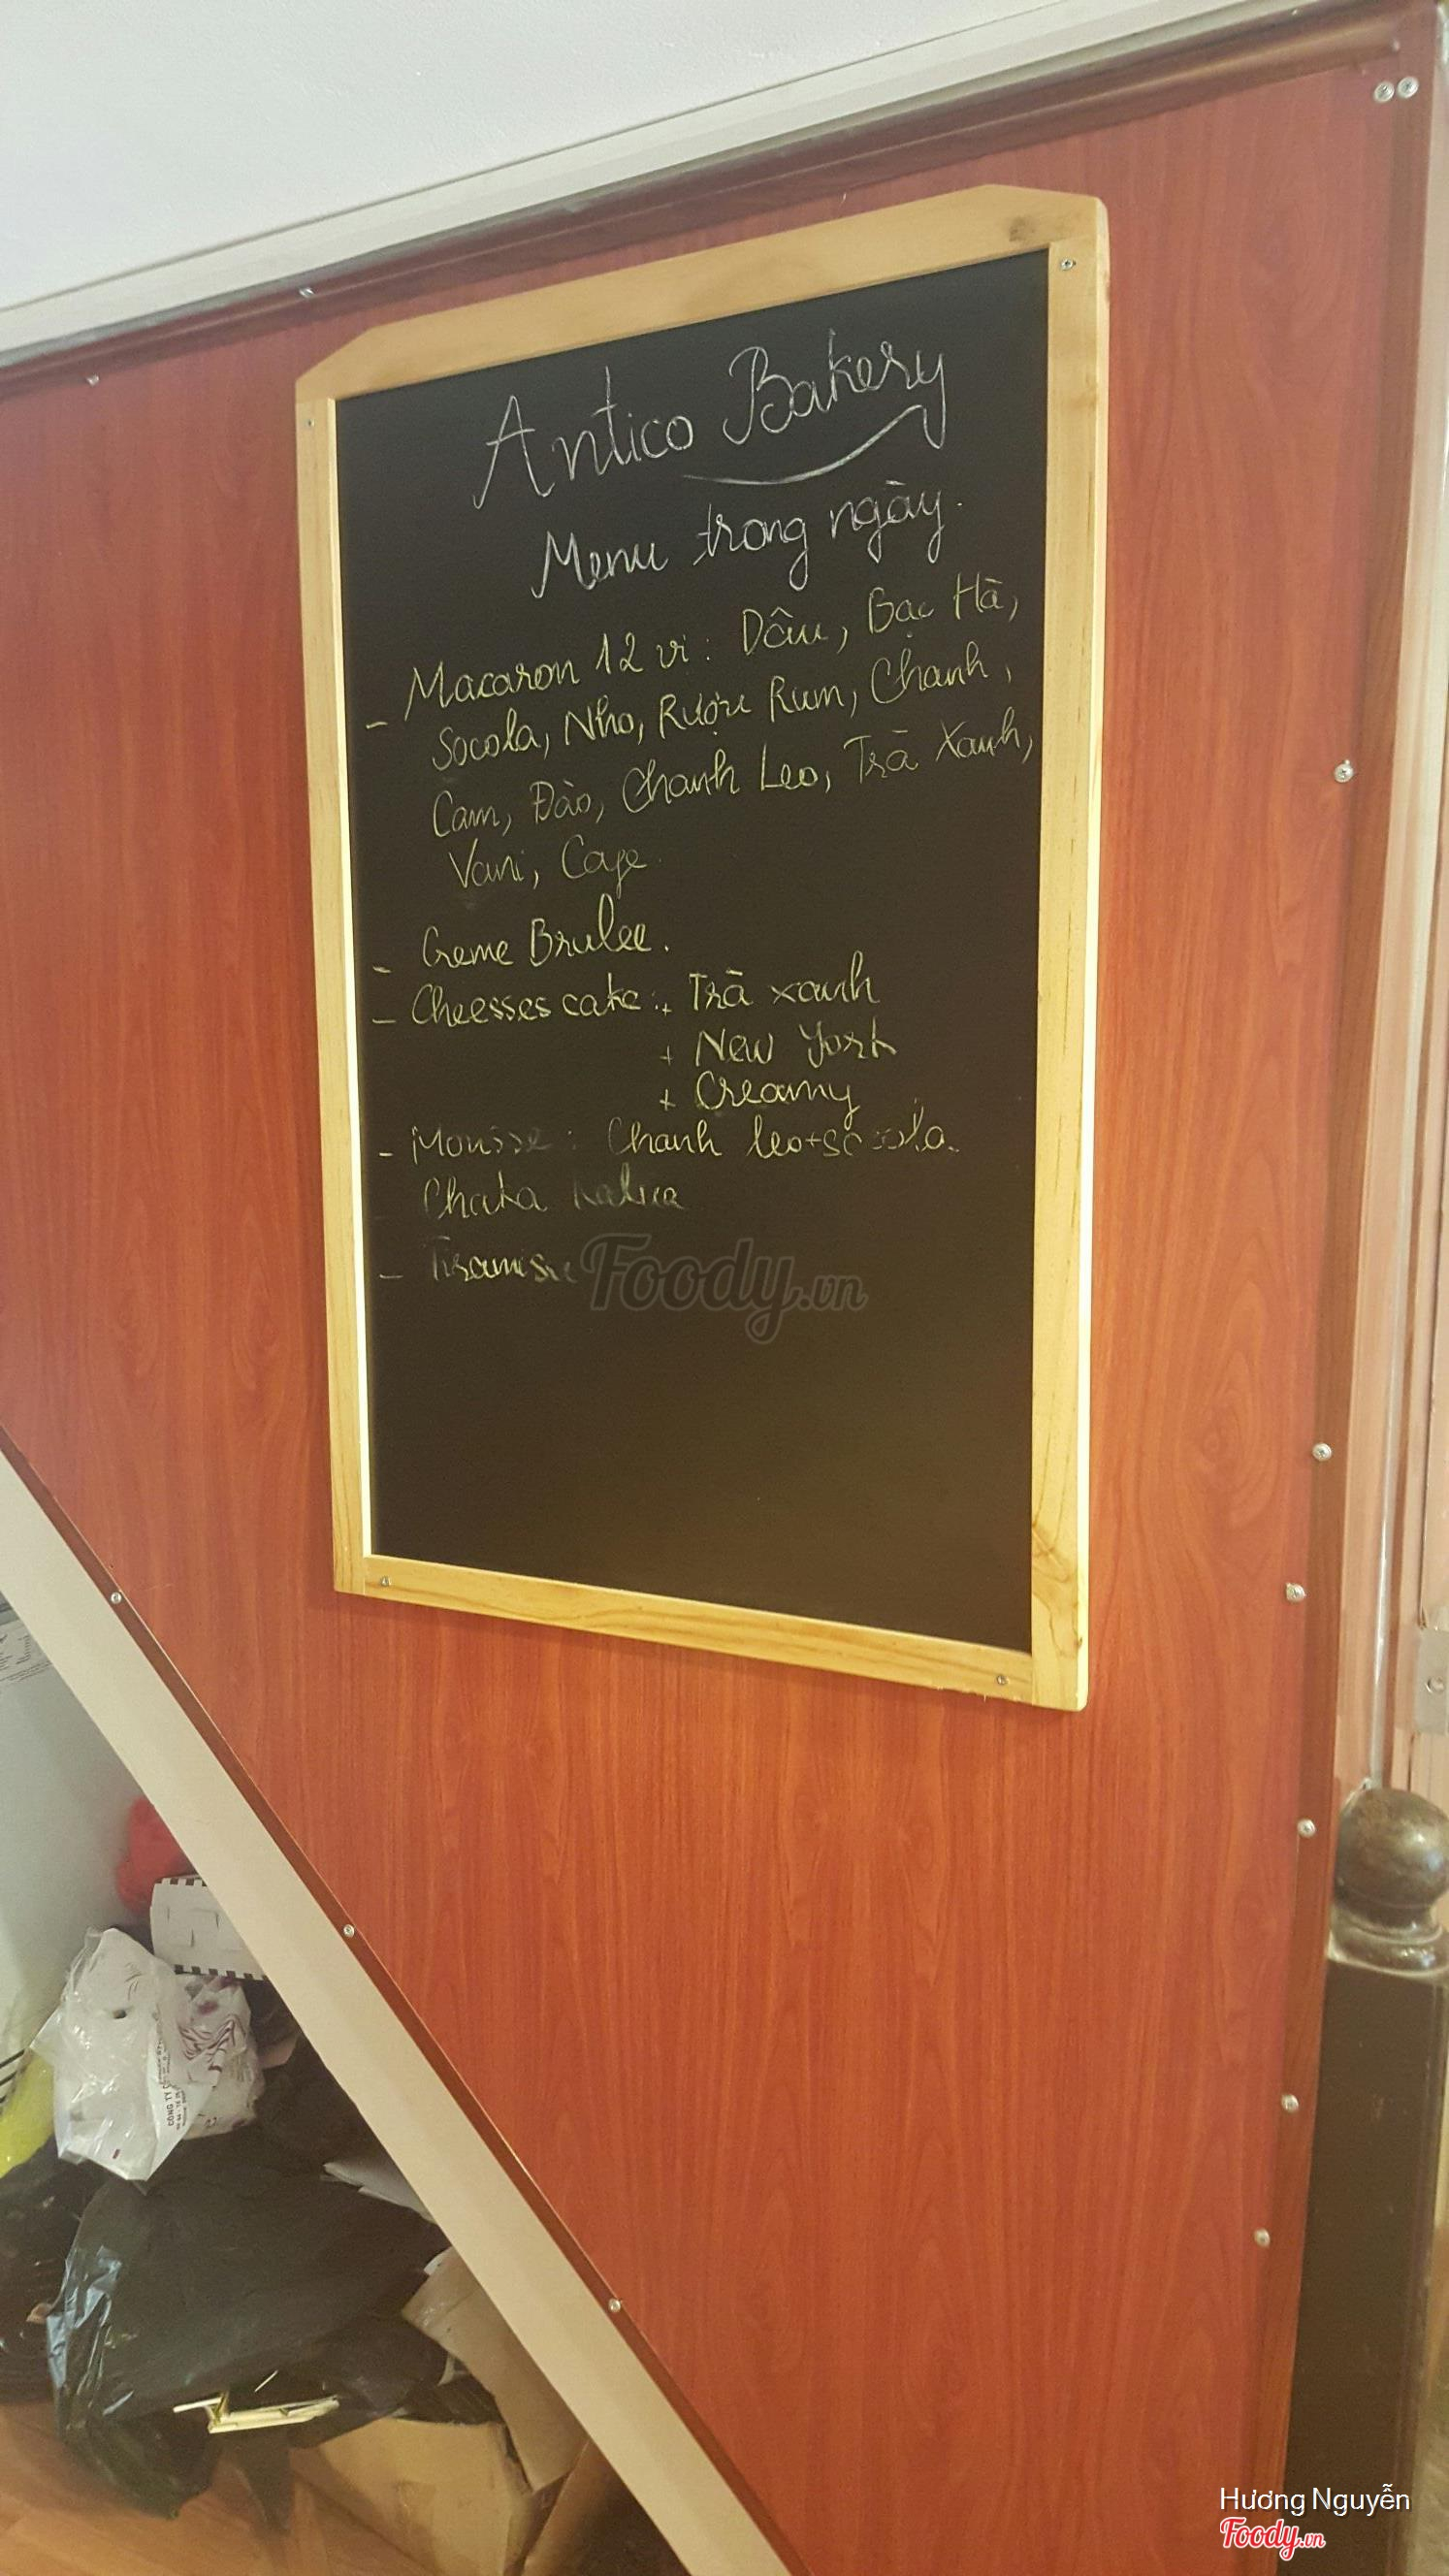 Antico Bakery
Menu trong ngày.
- Macaron 12 vị : Dâu, Bạc Hà,
Socola, Nho, Rượu Rum, Chanh,
Cam, Đào, Chanh Leo, Trà Xanh,
Vani, Cafe.
- Creme Brulee.
- Cheesses cake : + Trà xanh
+ New York
+ Creamy
- Mousse : Chanh leo + socola.
- Tiramisu
Foody.vn
CÔNG TY
Hương Nguyễn
Foody.vn